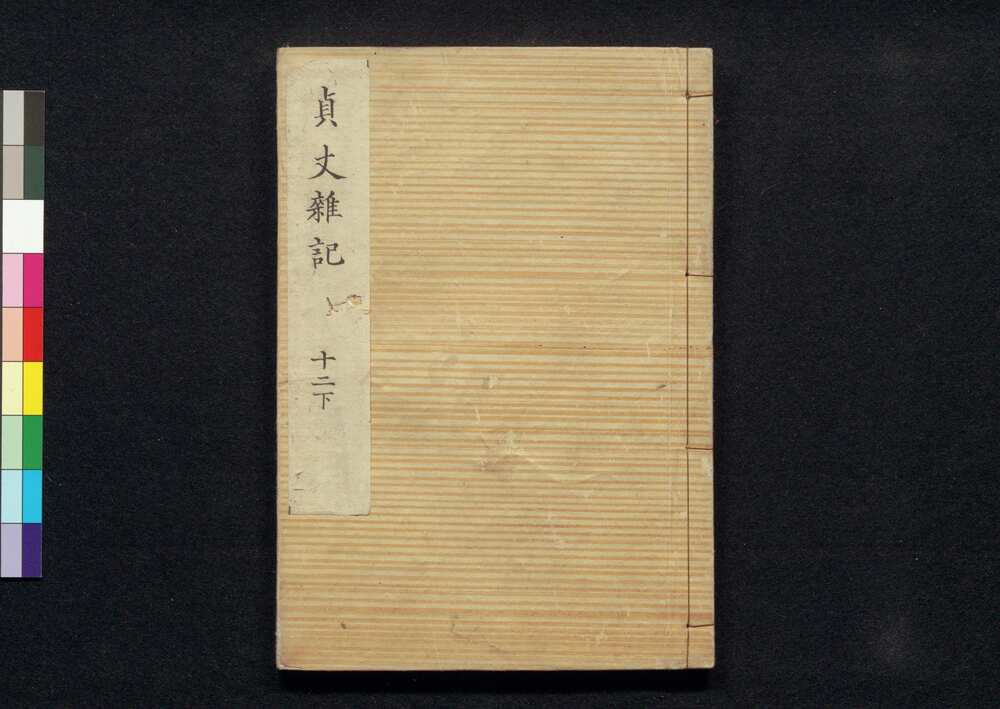 貞丈雜記
十二下